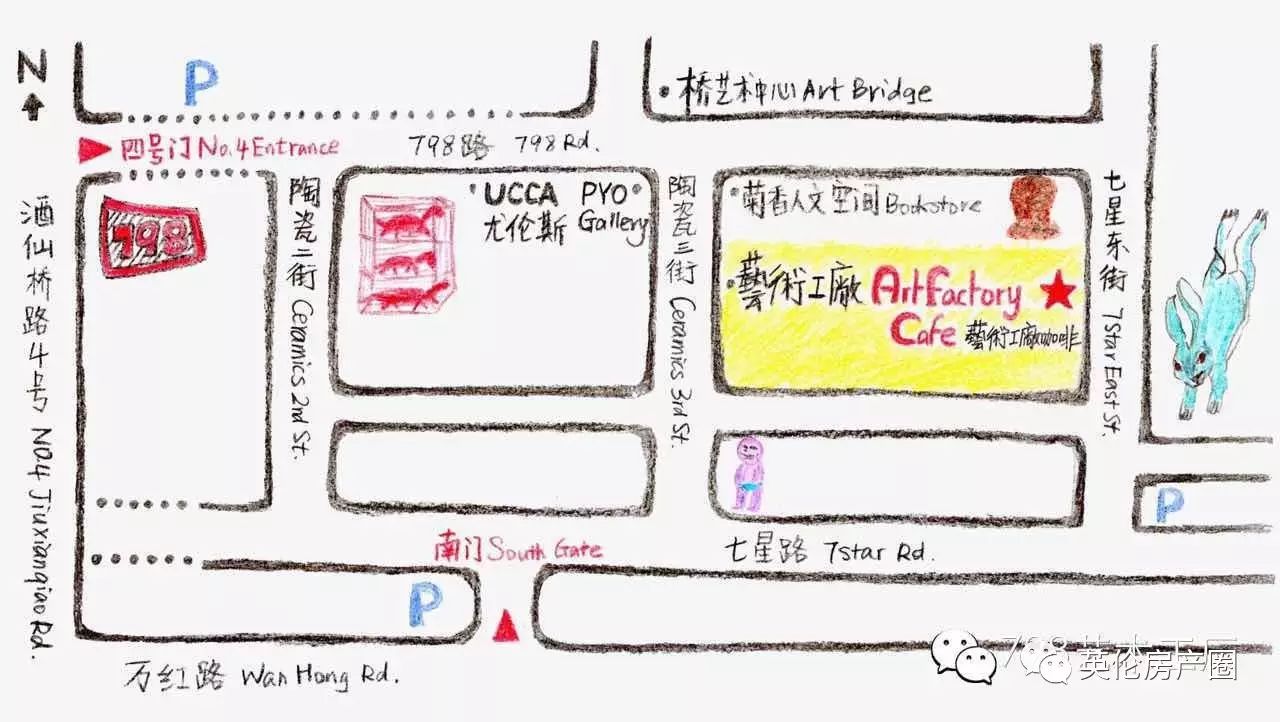 N
P
桥艺术中心 Art Bridge
四号门 No.4 Entrance
798路 798 Rd.
酒仙桥路4号 NO.4 Jiuxianqiao Rd.
798
陶瓷二街 Ceramics 2nd St.
UCCA
尤伦斯
PYO
Gallery
陶瓷三街 Ceramics 3rd St.
菊香人文空间 Bookstore
藝術工廠 Art Factory
Cafe 藝術工廠咖啡
七星东街 7Star East St.
P
南门 South Gate
七星路 7star Rd.
P
万红路 Wan Hong Rd.
英伦房产圈